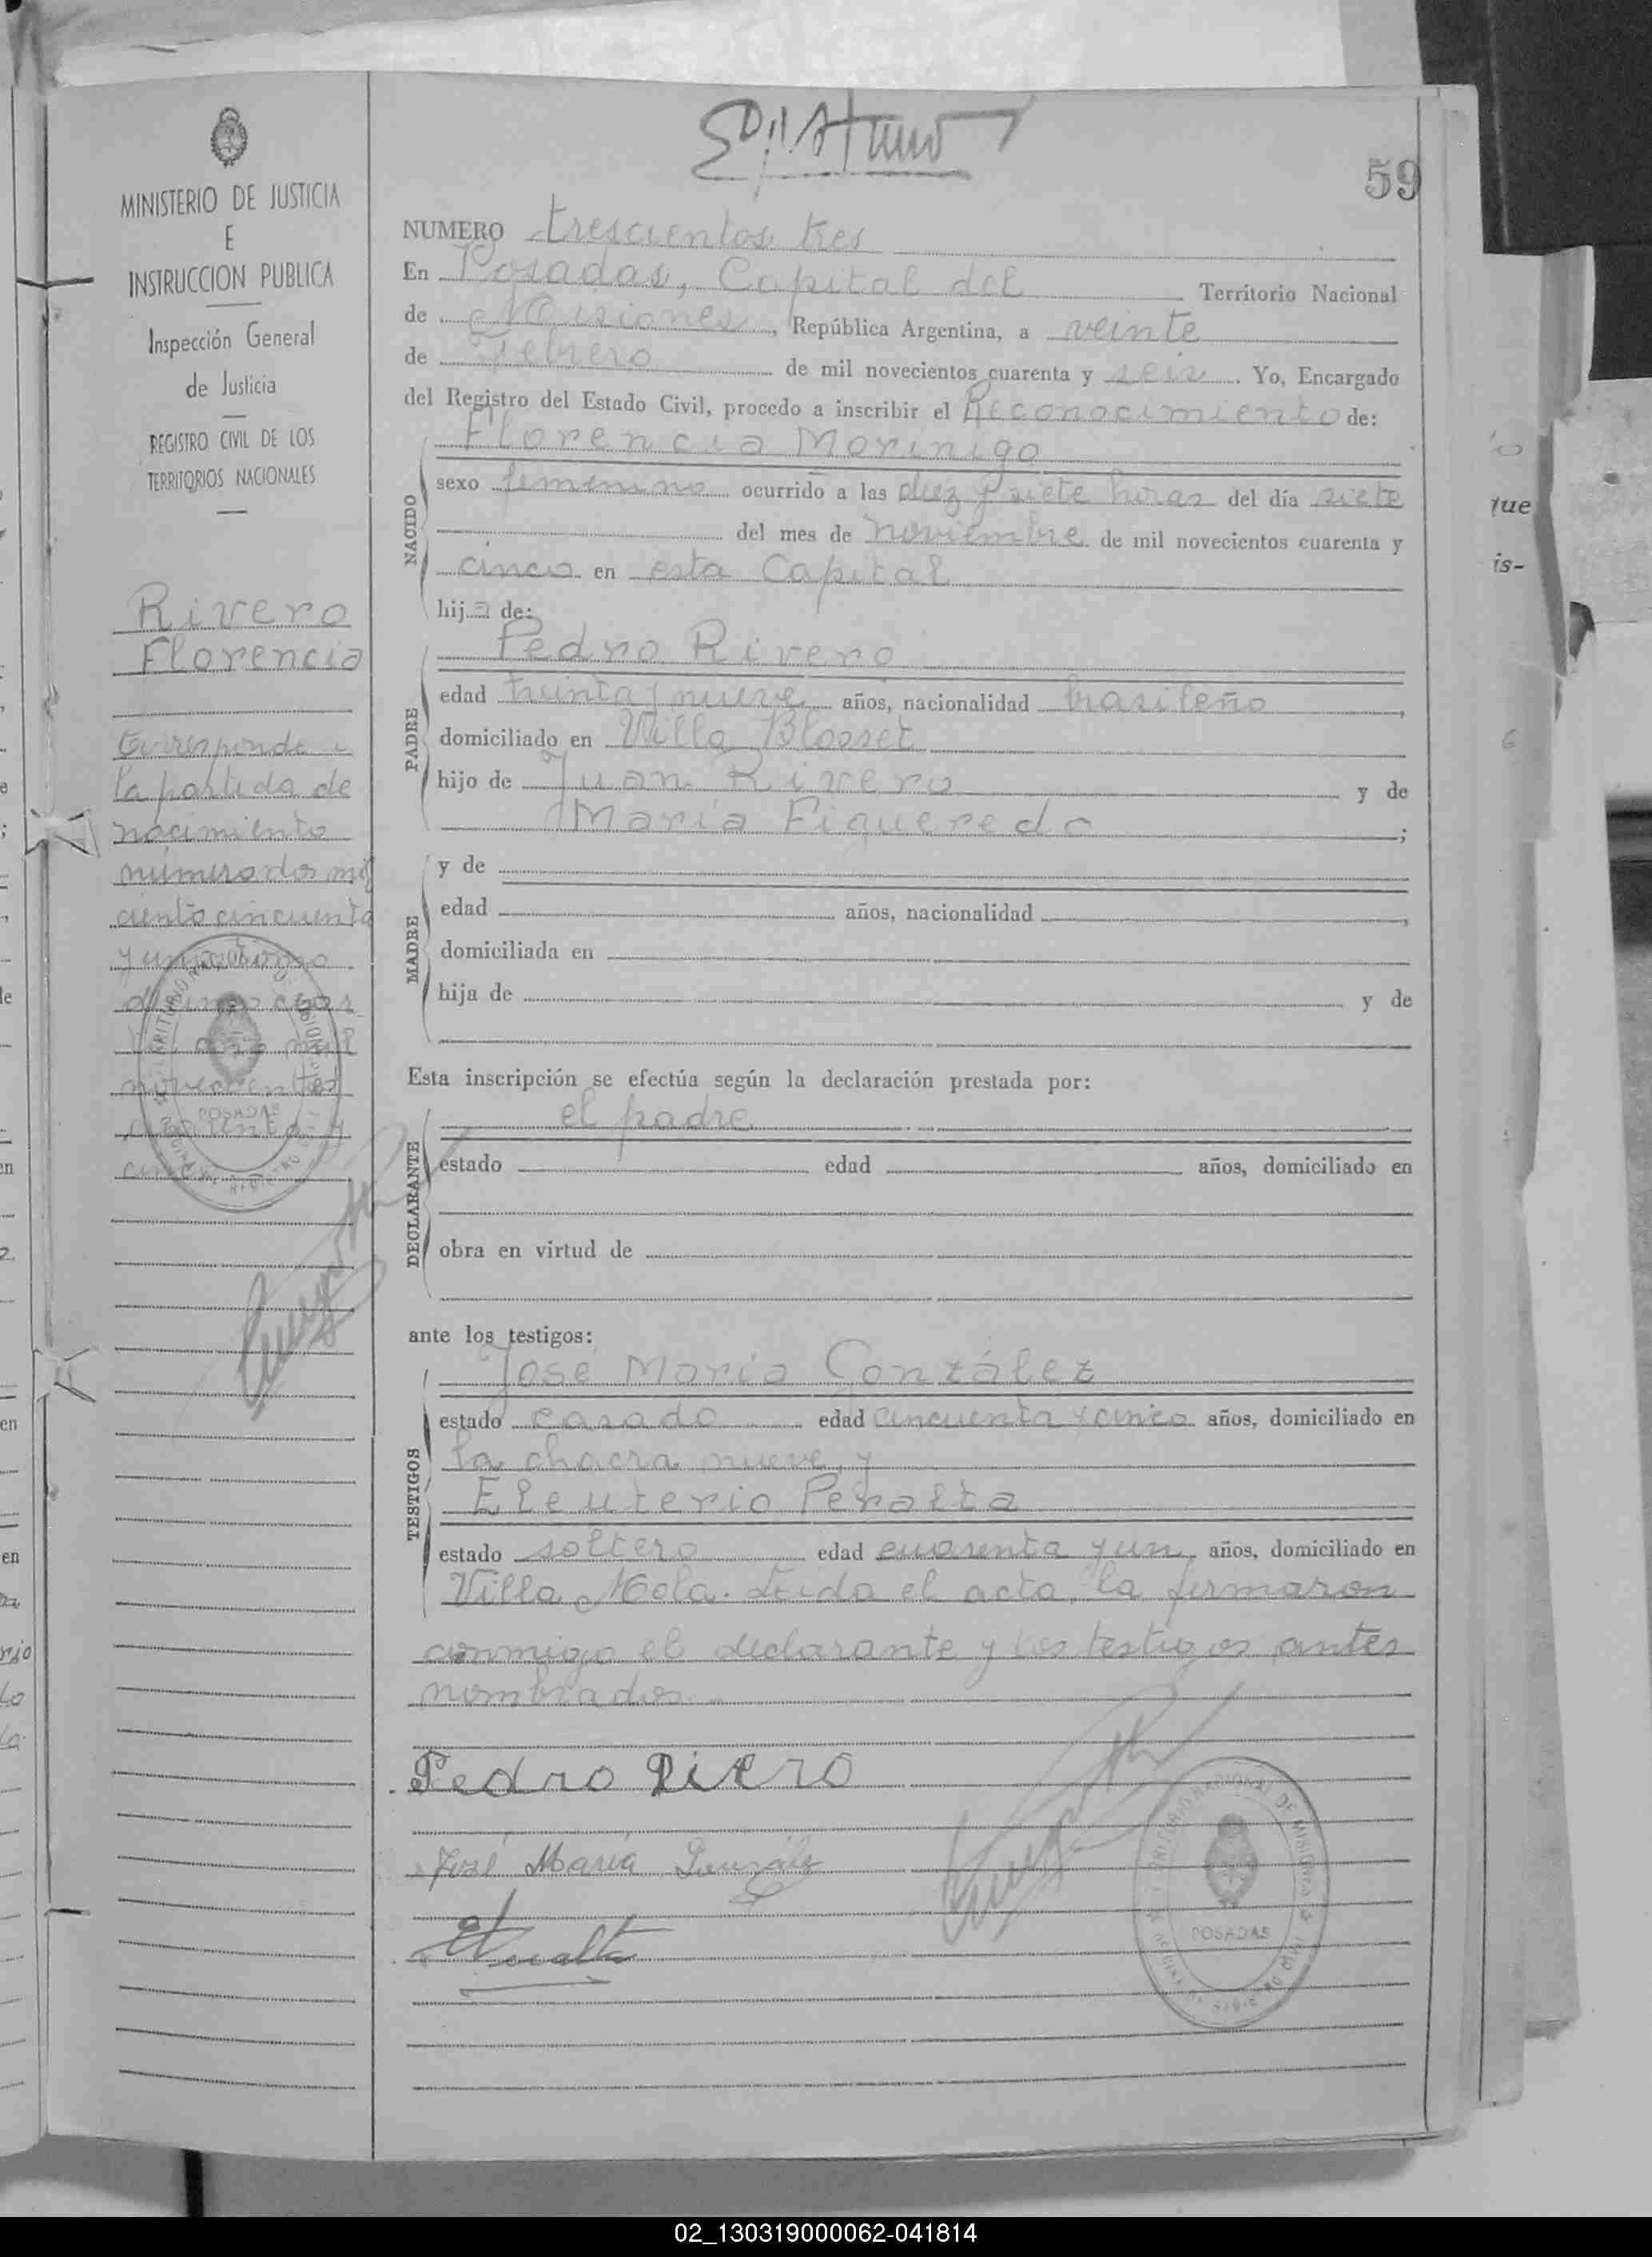 59
MINISTERIO DE JUSTICIA
E
INSTRUCCION PUBLICA
Inspección General
de Justicia
REGISTRO CIVIL DE LOS
TERRITORIOS NACIONALES
Rivero
Florencia
Corresponde a
la partida de
nacimiento
número dos mil
ciento cincuenta
y uno
del año mil
novecientos
cuarenta y
cinco
NUMERO trescientos tres
En Posadas, Capital del Territorio Nacional
de Misiones, República Argentina, a veinte
de Febrero de mil novecientos cuarenta y seis. Yo, Encargado
del Registro del Estado Civil, procedo a inscribir el Reconocimiento de:
NACIDO
Florencia Morinigo
sexo femenino ocurrido a las diez y siete horas del día siete
del mes de noviembre de mil novecientos cuarenta y
cinco en esta Capital
hija de:
PADRE
Pedro Rivero
edad treinta y nueve años, nacionalidad brasileño,
domiciliado en Villa Blosset
hijo de Juan Rivero y de
María Figueredo;
MADRE
y de
edad años, nacionalidad ,
domiciliada en
hija de y de
Esta inscripción se efectúa según la declaración prestada por:
DECLARANTE
el padre
estado edad años, domiciliado en
obra en virtud de
ante los testigos:
TESTIGOS
José María González
estado casado edad cincuenta y cinco años, domiciliado en
la chacra nueve, y
Eleuterio Peralta
estado soltero edad cuarenta y un años, domiciliado en
Villa Mola. Leida el acta, la firmaron
conmigo el declarante y los testigos antes
nombrados.
Pedro Rivero
José María González
EPeralta
POSADAS
POSADAS
que
is-
02_130319000062-041814